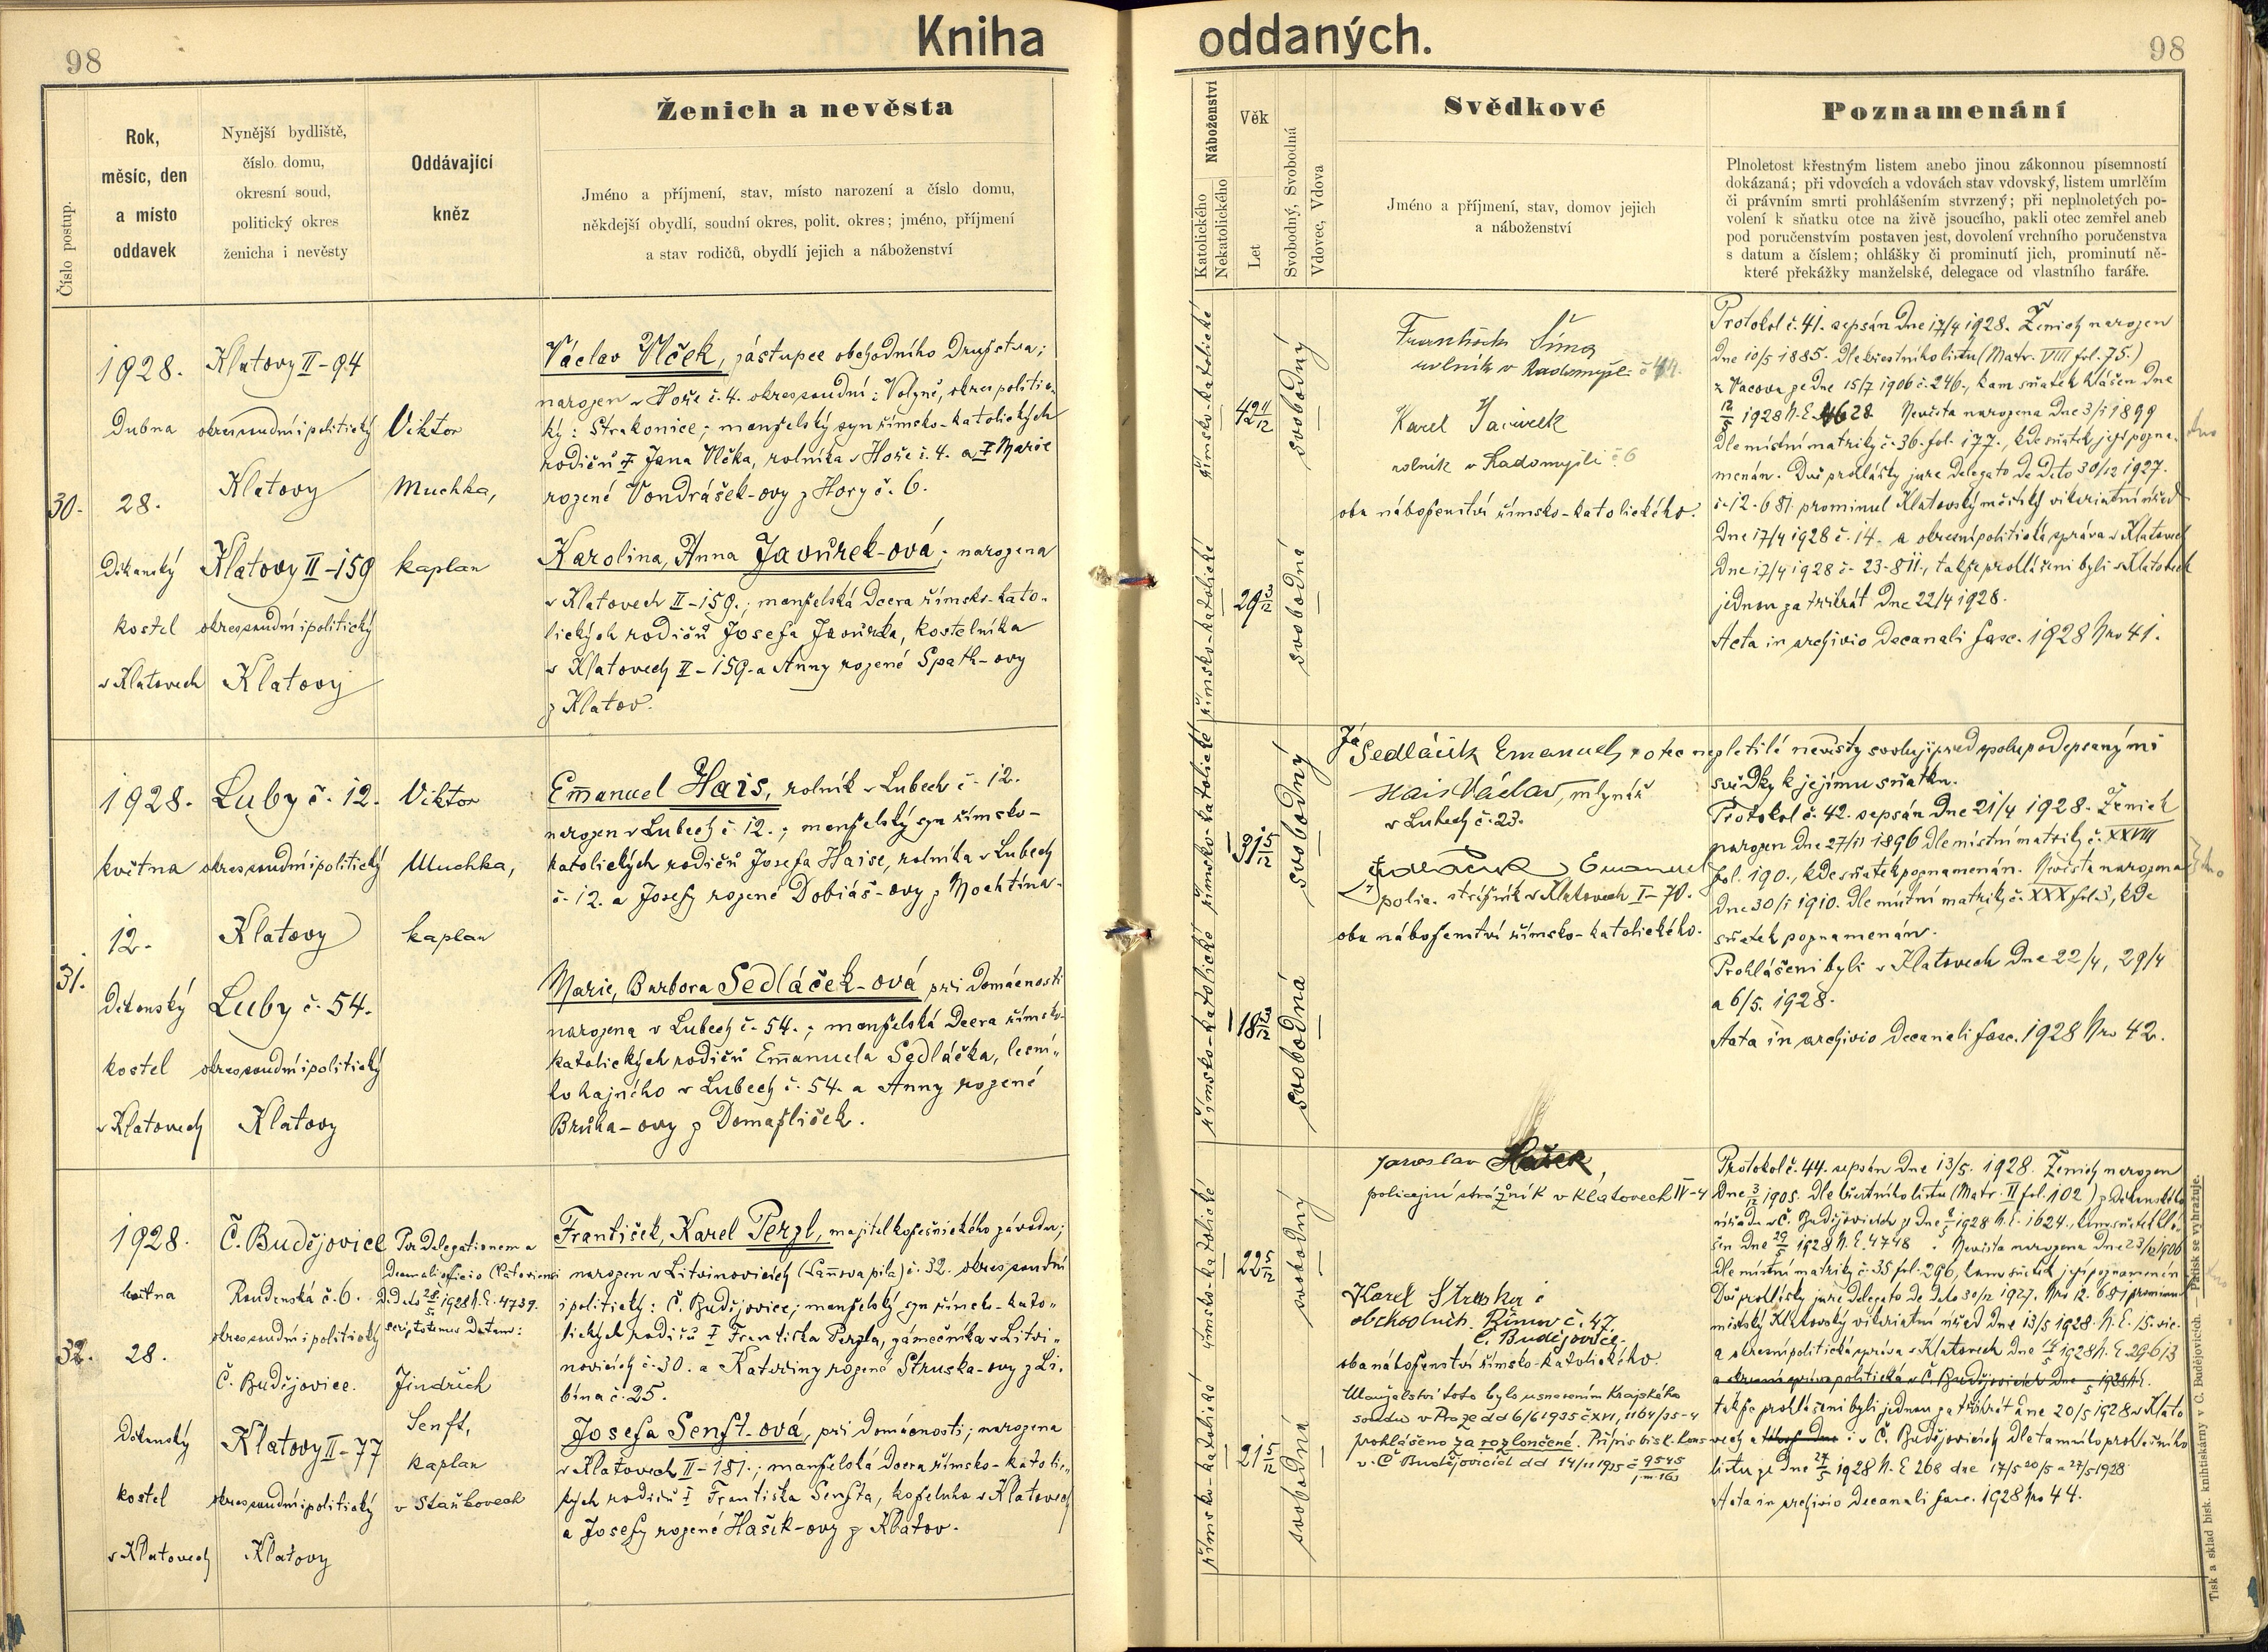 98
Kniha oddaných.
98
Číslo postup.
Rok,
měsíc, den
a místo
oddavek
Nynější bydliště,
číslo domu,
okresní soud,
politický okres
ženicha i nevěsty
Oddávající
kněz
Ženich a nevěsta
Jméno a příjmení, stav, místo narození a číslo domu,
někdejší obydlí, soudní okres, polit. okres; jméno, příjmení
a stav rodičů, obydlí jejich a náboženství
Náboženství
Katolického
Nekatolického
Věk
Let
Svobodný, Svobodná
Vdovec, Vdova
Svědkové
Jméno a příjmení, stav, domov jejich
a náboženství
Poznamenání
Plnoletost křestným listem anebo jinou zákonnou písemností
dokázaná; při vdovcích a vdovách stav vdovský, listem umrlčím
či právním smrti prohlášením stvrzený; při neplnoletých po-
volení k sňatku otce na živě jsoucího, pakli otec zemřel aneb
pod poručenstvím postaven jest, dovolení vrchního poručenstva
s datum a číslem; ohlášky či prominutí jich, prominutí ně-
které překážky manželské, delegace od vlastního faráře.
30.
1928.
Dubna
28.
Děkanský
kostel
v Klatovech
Klatovy II-94
okres soudní i politický
Klatovy
Klatovy II-159
okres soudní i politický
Klatovy
Viktor
Muchka,
kaplan
Václav Vlček, zástupce obchodního družstva;
narozen v Hoře č. 4. okres soudní: Volyně, okres politic-
ký: Strakonice; manželský syn římsko-katolických
rodičů † Jana Vlčka, rolníka v Hoře č. 4. a † Marie
rozené Vondrášek-ovy z Hory č. 6.
Karolina, Anna Javůrek-ová; narozena
v Klatovech II-159.; manželská dcera římsko-kato-
lických rodičů Josefa Javůrka, kostelníka
v Klatovech II-159. a Anny rozené Spath-ovy
z Klatov.
římsko-katolické
římsko-katolické
42 11/12
29 3/12
svobodný
svobodná
František Šíma
rolník v Radomyšli
Karel Javůrek
rolník v Radomyšli č 6
oba náboženství římsko-katolického.
Protokol č. 41. sepsán dne 17/4 1928. Ženich narozen
dne 10/5 1885. dle křestního listu (Matr. VIII fol. 75.)
z Vacova ze dne 15/7 1906 č. 246., kam sňatek hlášen dne
Nevěsta narozena dne 3/1 1899
dle místní matriky č. 36. fol. 177., kde sňatek její pozna-
menán. Dvě prohlášky jure delegato de dato 30/12 1927.
č. 12.681. prominul Klatovský městský vikariátní úřad
dne 17/4 1928 č. 14. a okresní politická správa v Klatovech
dne 17/4 1928 č. 23.811., takže prohlášeni byli v Klatovech
jednou za třikrát dne 22/4 1928.
Acta in archivio decanali fasc. 1928 Nro 41.
31.
1928.
května
12.
Děkanský
kostel
v Klatovech
Luby č. 12.
okres soudní i politický
Klatovy
Luby č. 54.
okres soudní i politický
Klatovy
Viktor
Muchka,
kaplan
Emanuel Hais, rolník v Lubech č. 12.
narozen v Lubech č. 12.; manželský syn římsko-
katolických rodičů Josefa Haise, rolníka v Lubech
č. 12. a Josefy rozené Dobiáš-ovy z Mochtína.
Marie, Barbora Sedláček-ová při domácnosti
narozena v Lubech č. 54.; manželská dcera římsko-
katolických rodičů Emanuela Sedláčka, lesní-
ho hajného v Lubech č. 54. a Anny rozené
Brůha-ovy z Domažliček.
římsko-katolické
římsko-katolické
31 5/12
18
svobodný
svobodná
Já Sedláček Emanuel, otec nezletilé nevěsty svoluji před spolupodepsanými
svědky k jejímu sňatku.
Hais Václav, mlynář
v Lubech č. 23.
Sedláček Emanuel
polic. strážník v Klatovech I-70.
oba náboženství římsko-katolického.
Protokol č. 42. sepsán dne 21/4 1928. Ženich
narozen dne 27/11 1896 dle místní matriky č. XXVIII
fol. 190., kde sňatek poznamenán. Nevěsta narozena
dne 30/1 1910. dle místní matriky č. XXX fol. 3, kde
sňatek poznamenán.
Prohlášeni byli v Klatovech dne 22/4, 29/4
a 6/5. 1928.
Acta in archivio decanali fasc. 1928 Nro 42.
32.
1928.
května
28.
Děkanský
kostel
v Klatovech
Č. Budějovice
Roudenská č. 6.
okres soudní i politický
Č. Budějovice.
Klatovy II-77
okres soudní i politický
Klatovy
Per delegationem a
decanali officio Clatoviensi
De dato 28/5 1928 N.E. 4739.
Jindřich
Senft,
kaplan
v Staňkovech
František, Karel Perzl, majitel kožešnického závodu;
narozen v Litvinovicích (Lannova pila) č. 32. okres soudní
i politický: Č. Budějovice; manželský syn římsko-kato-
lických rodičů † Františka Perzla, zámečníka v Litvi-
novicích č. 30. a Kateřiny rozené Struska-ovy z Li-
bína č. 25.
Josefa Senft-ová, při domácnosti; narozena
v Klatovech II-181.; manželská dcera římsko-katolic-
kých rodičů † Františka Senfta, koželuha v Klatovech
a Josefy rozené Hašek-ovy z Klatov.
římsko-katolické
římsko-katolické
22 5/12
21 5/12
svobodný
svobodná
Jaroslav Hašek,
policejní strážník v Klatovech IV-4
Karel Struska
obchodník. Římov č. 47.
Č. Budějovice.
oba náboženství římsko-katolického.
Manželství toto bylo usnesením Krajského
soudu v Praze dd 6/6 1935 č XVI, 1164/35-4
prohlášeno za rozloučené. Přípis bisk. kons.
v Č Budějovicích dd 14/11 1935 č 9545
Protokol č. 44. sepsán dne 13/5. 1928. Ženich narozen
dne 3/12 1905. dle křestního listu (Matr. II fol. 102) z děkanského
úřadu v Č. Budějovicích
šen dne 29/5 1928 N.E. 4748. Nevěsta narozena dne 23/12 1906
dle místní matriky č. 35 fol. 296, kam sňatek její poznamenán
Dvě prohlášky jure delegato de dato 30/12 1927. Nro 12.681 prominul
městský Klatovský vikariátní úřad dne 13/5 1928. N.E. 15.
a okresní politická správa v Klatovech dne 14/5 1928 N.E. 29613
a okresní správa politická v Č. Budějovicích dne
takže prohlášeni byli jednou za třikrát dne 20/5 1928 v Klato-
vech a v Č. Budějovicích dle tamního prohlášního
listu ze dne 27/5 1928 N.E. 268 dne 17/5 20/5 a 27/5 1928
Acta in archivio decanali fasc. 1928 Nro 44.
Tisk a sklad bisk. knihtiskárny v Č. Budějovicích. — Patisk se vyhražuje.